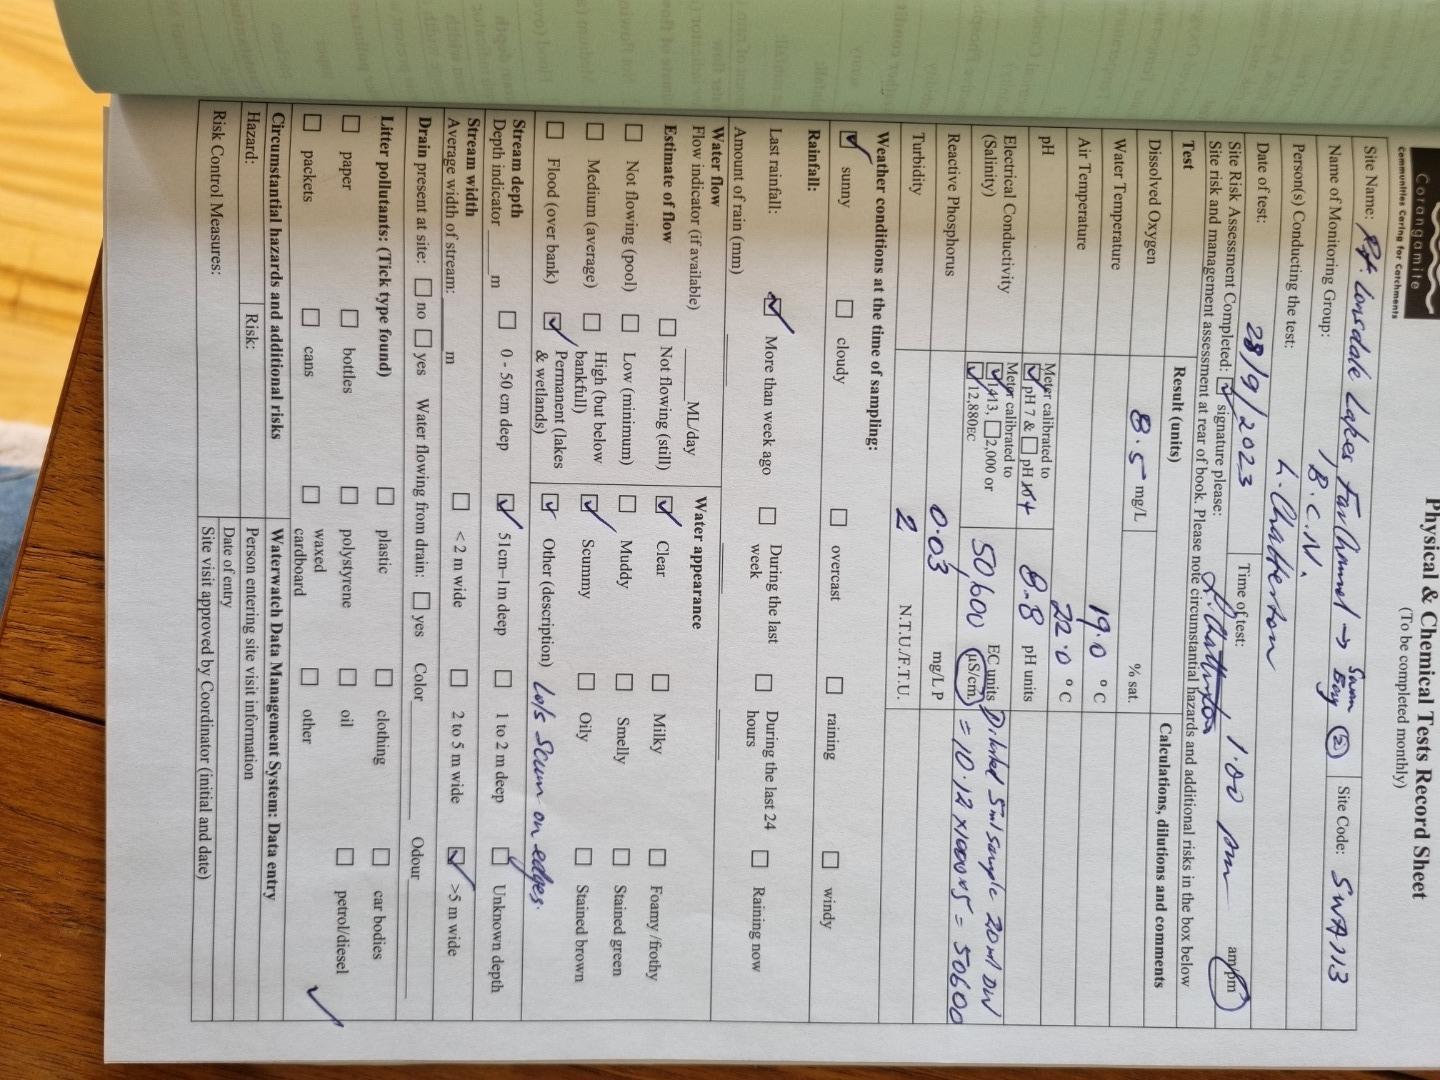 Corangamite
Communities Caring for Catchments
Physical & Chemical Tests Record Sheet
(To be completed monthly)
Site Name: Pt. Lonsdale Lakes Far Channel → Swan Bay (2) Site Code: SWA113
Name of Monitoring Group: B.C.N.
Person(s) Conducting the test: L. Chatterton
Date of test: 28/9/2023 Time of test: 1.00 pm am/pm
Site Risk Assessment Completed: ☑ signature please: L. Chatterton
Site risk and management assessment at rear of book. Please note circumstantial hazards and additional risks in the box below
Test Result (units) Calculations, dilutions and comments
Dissolved Oxygen 8.5 mg/L % sat.
Water Temperature 19.0 °C
Air Temperature 22.0 °C
pH Meter calibrated to ☑ pH 7 & ☐ pH 4 8.8 pH units
Electrical Conductivity (Salinity) Meter calibrated to ☑ 1413, ☐ 2,000 or ☑ 12,880EC 50,600 EC units (µS/cm) Diluted 5ml sample 20ml DW
= 10.12 x1000x5 = 50600
Reactive Phosphorus 0.03 mg/L P
Turbidity 2 N.T.U./F.T.U.
Weather conditions at the time of sampling:
☑ sunny ☐ cloudy ☐ overcast ☐ raining ☐ windy
Rainfall:
Last rainfall: ☑ More than week ago ☐ During the last week ☐ During the last 24 hours ☐ Raining now
Amount of rain (mm)
Water flow
Flow indicator (if available) ______ML/day
Estimate of flow ☐ Not flowing (still)
☐ Not flowing (pool) ☐ Low (minimum)
☐ Medium (average) ☐ High (but below bankfull)
☐ Flood (over bank) ☑ Permanent (lakes & wetlands)
Water appearance
☑ Clear ☐ Milky ☐ Foamy/frothy
☐ Muddy ☐ Smelly ☐ Stained green
☑ Scummy ☐ Oily ☐ Stained brown
☑ Other (description) Lots Scum on edges.
Stream depth
Depth indicator ______ m ☐ 0 - 50 cm deep ☑ 51cm–1m deep ☐ 1 to 2 m deep ☐ Unknown depth
Stream width
Average width of stream: ______ m ☐ < 2 m wide ☐ 2 to 5 m wide ☑ >5 m wide
Drain present at site: ☐ no ☐ yes Water flowing from drain: ☐ yes Color ______ Odour ______
Litter pollutants: (Tick type found) ☐ plastic ☐ clothing ☐ car bodies
☐ paper ☐ bottles ☐ polystyrene ☐ oil ☐ petrol/diesel
☐ packets ☐ cans ☐ waxed cardboard ☐ other ✓
Circumstantial hazards and additional risks
Hazard: Risk:
Risk Control Measures:
Waterwatch Data Management System: Data entry
Person entering site visit information
Date of entry
Site visit approved by Coordinator (initial and date)